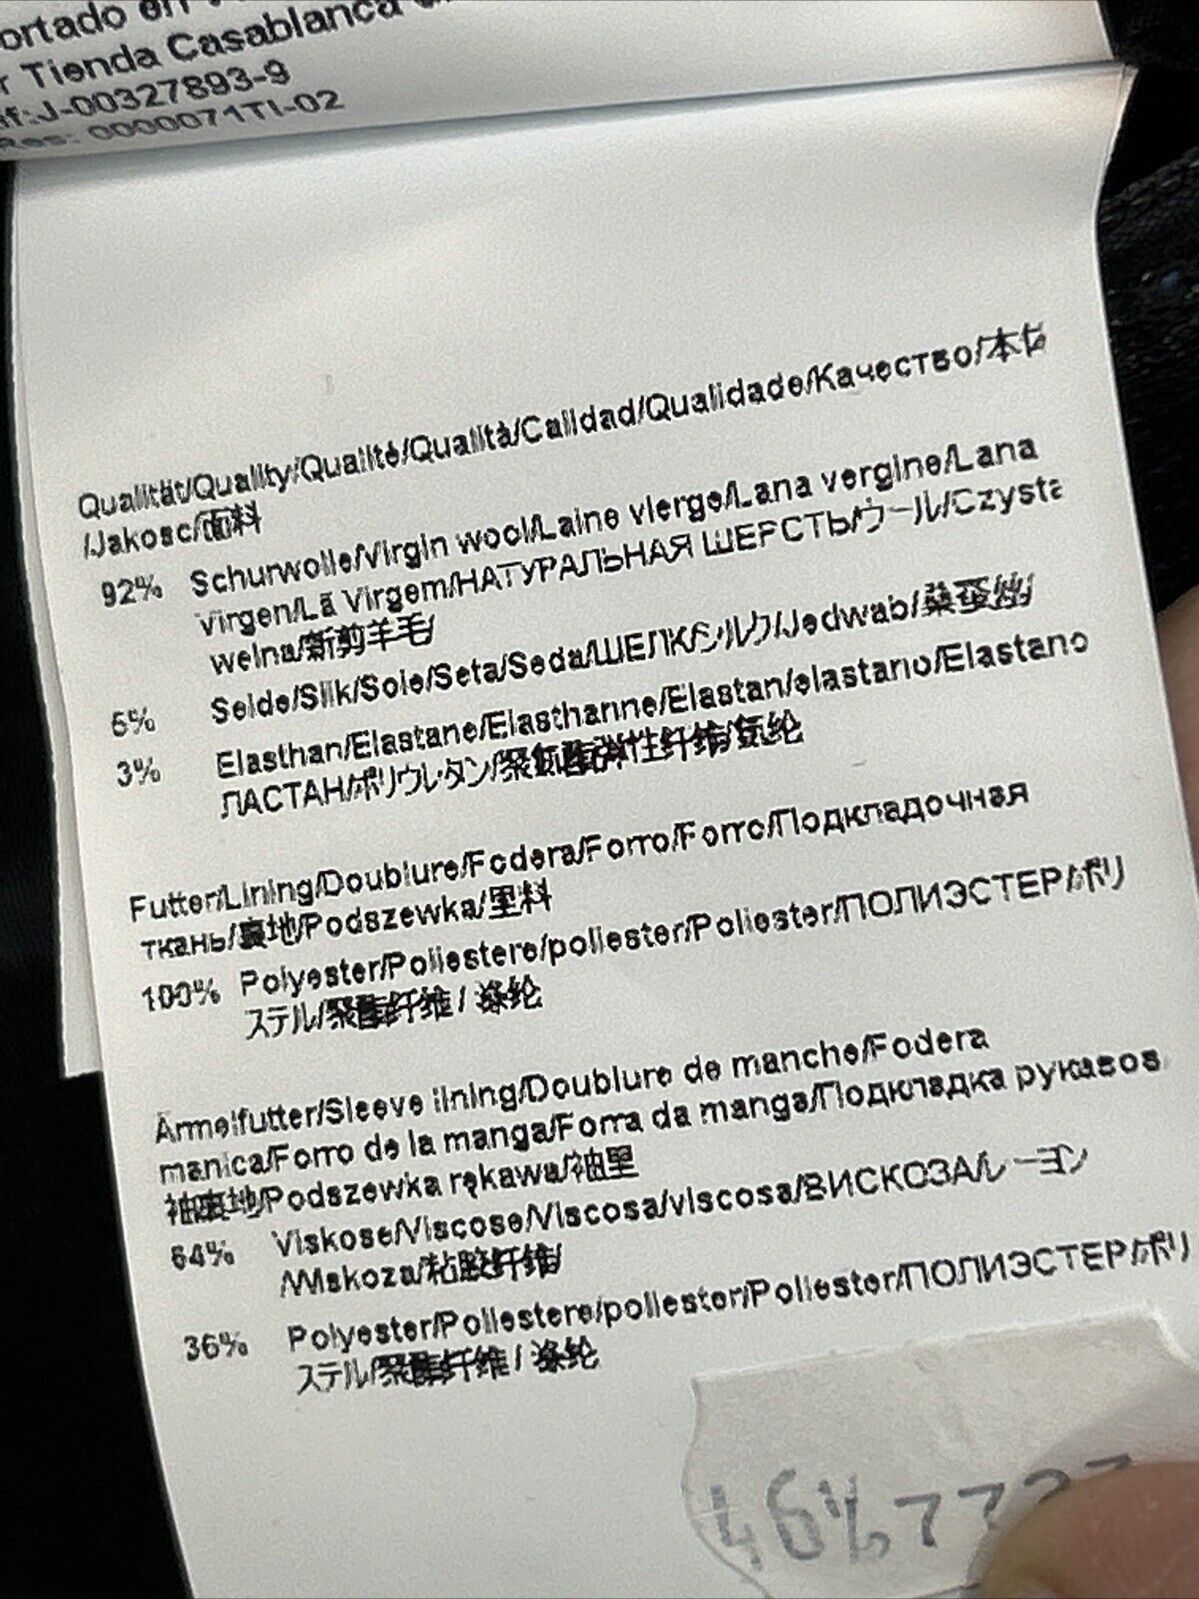 ortado en
r Tienda Casablanca
nf:J-00327893-9
Res: 0000071TI-02
Qualität/Quality/Qualité/Qualità/Calidad/Qualidade/Качество/本体
/Jakosc/面料
92% Schurwolle/Virgin wool/Laine vierge/Lana vergine/Lana
Virgen/Lã Virgem/НАТУРАЛЬНАЯ ШЕРСТЬ/ウール/Czysta
welna/新剪羊毛/
5% Seide/Silk/Soie/Seta/Seda/ШЕЛК/シルク/Jedwab/桑蚕丝/
3% Elasthan/Elastane/Elasthanne/Elastan/elastano/Elastano
ЛАСТАН/ポリウレタン/聚氨酯弹性纤维/氨纶
Futter/Lining/Doublure/Fodera/Forro/Forro/Подкладочная
ткань/裏地/Podszewka/里料
100% Polyester/Poliestere/poliester/Poliester/ПОЛИЭСТЕР/ポリ
ステル/聚酯纤维 / 涤纶
Ärmelfutter/Sleeve lining/Doublure de manche/Fodera
manica/Forro de la manga/Forra da manga/Подкладка рукавов
袖裏地/Podszewka rękawa/袖里
64% Viskose/Viscose/Viscosa/viscosa/ВИСКОЗА/レーヨン
/Wiskoza/粘胶纤维/
36% Polyester/Poliestere/poliester/Poliester/ПОЛИЭСТЕР/ポリ
ステル/聚酯纤维 / 涤纶